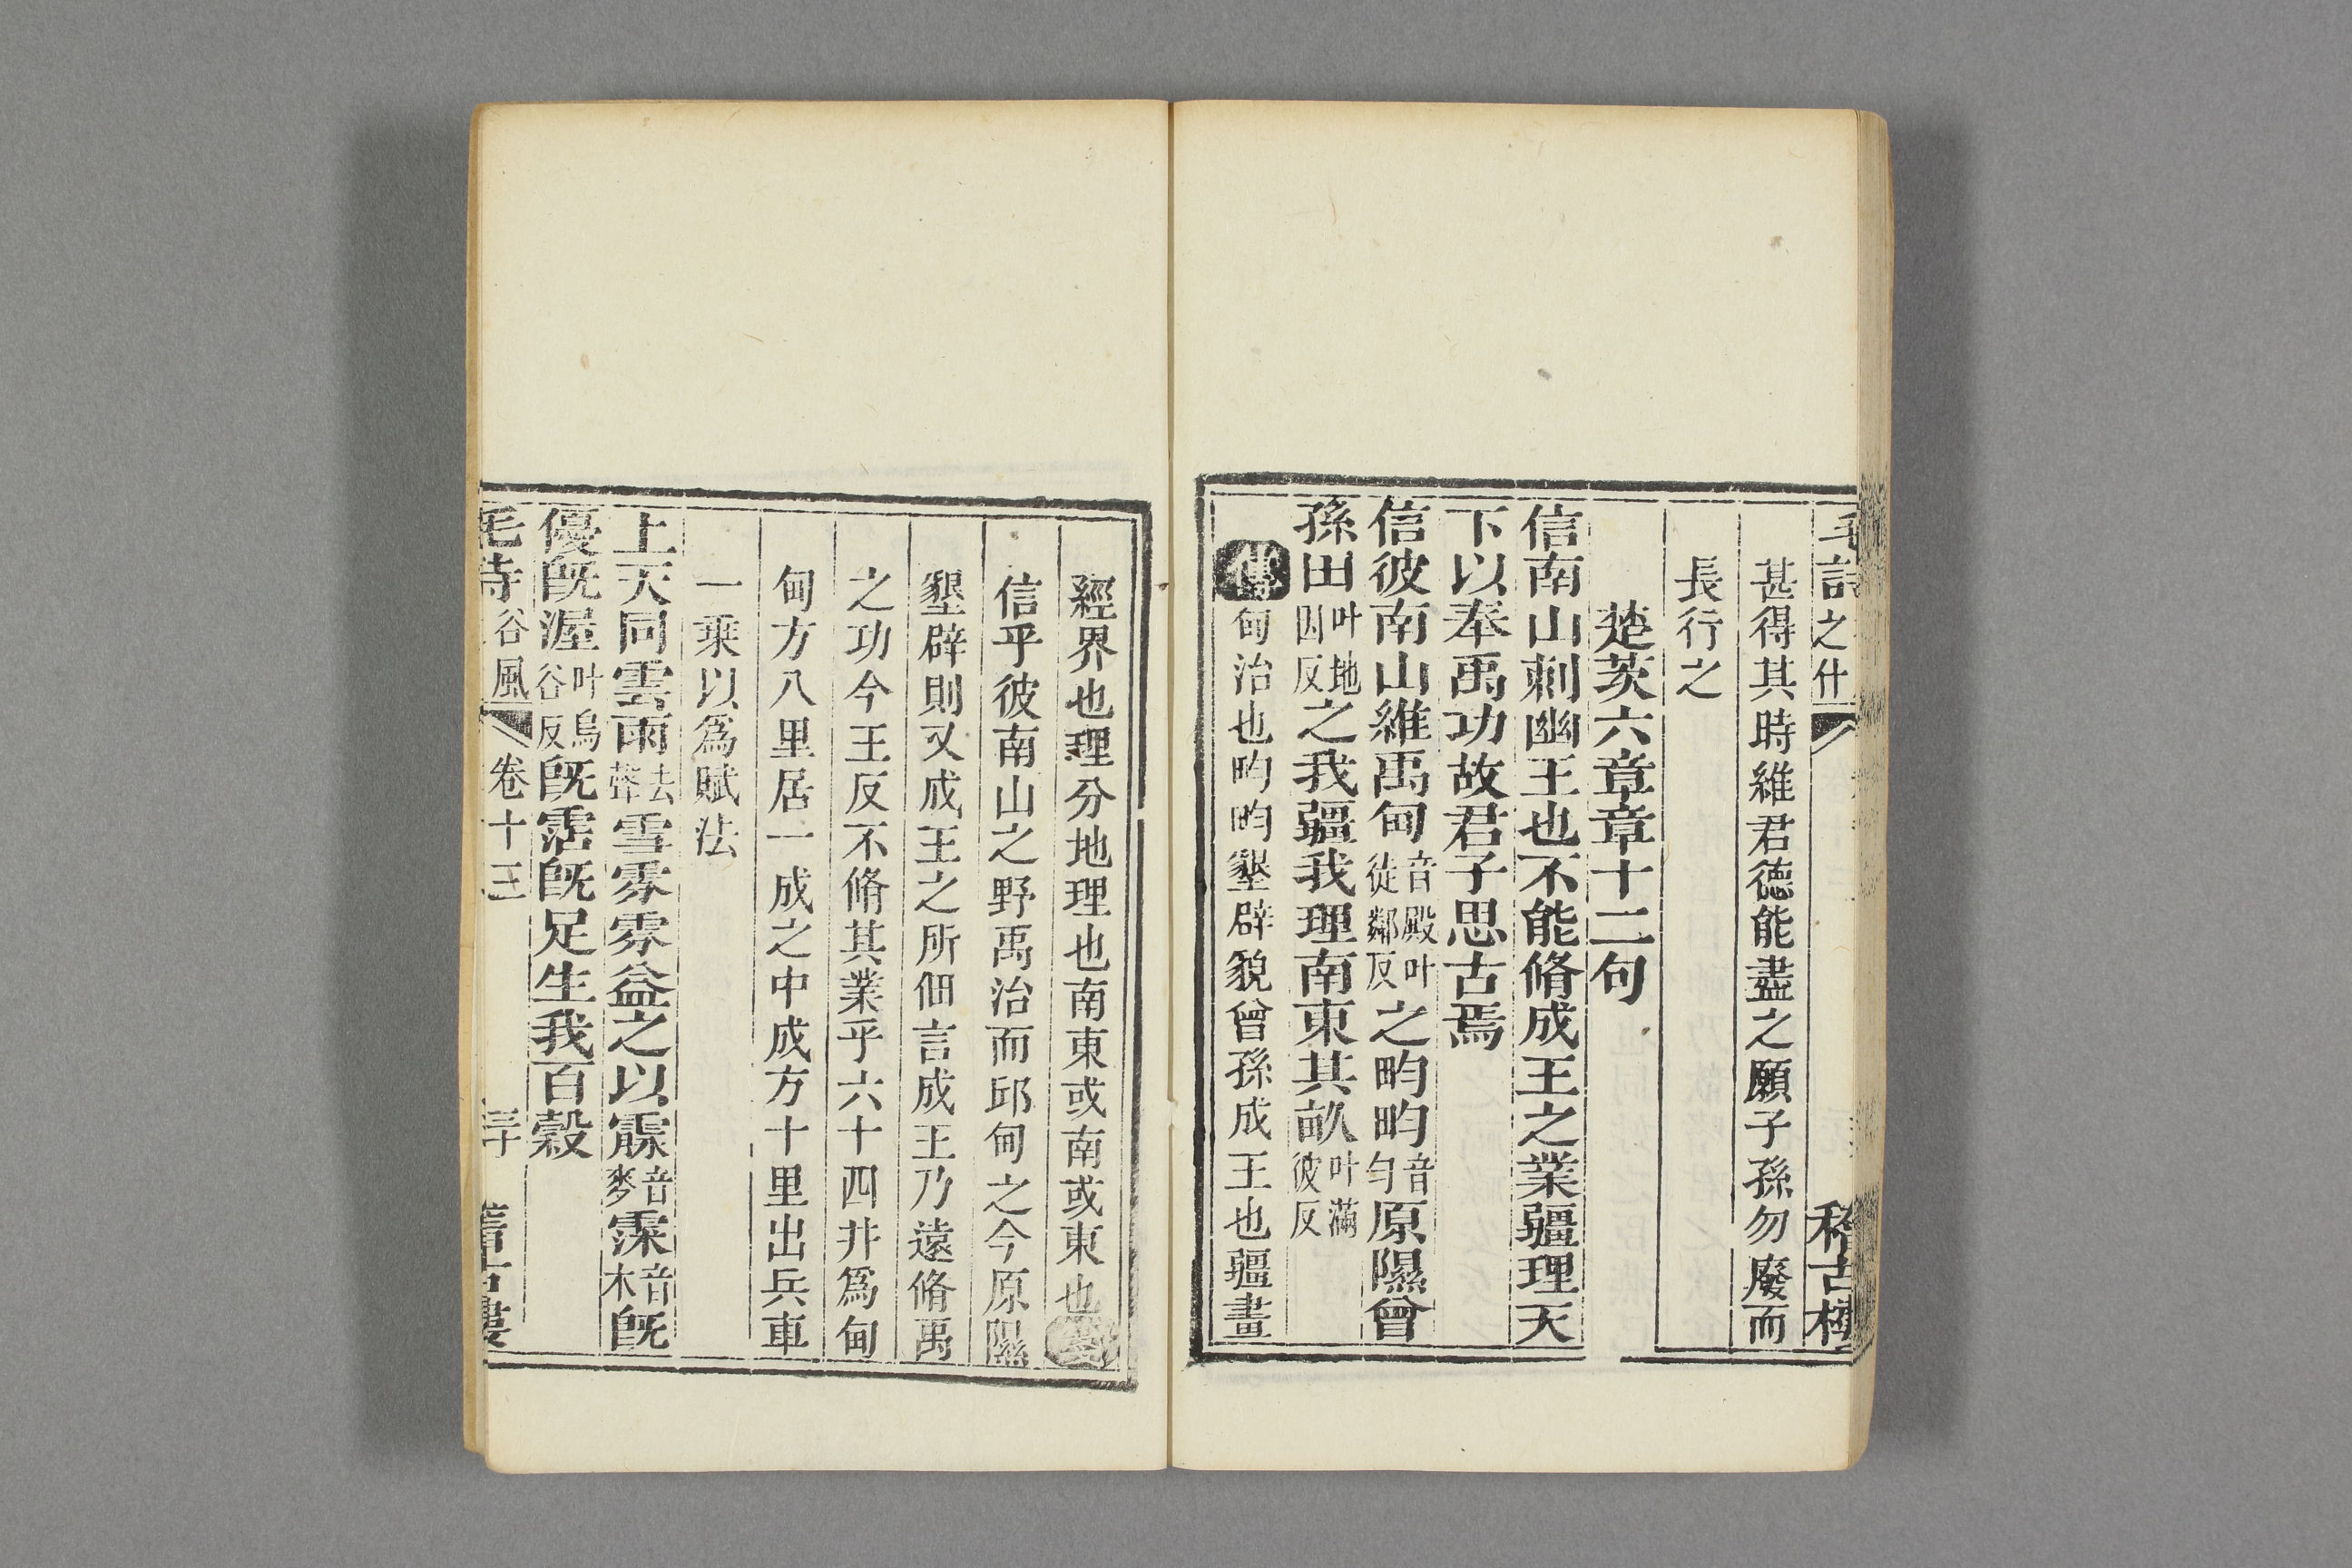 毛詩之什 稽古樓
甚得其時維君德能盡之願子孫勿廢而
長行之
楚茨六章章十二句
信南山刺幽王也不能脩成王之業疆理天
下以奉禹功故君子思古焉
信彼南山維禹甸音殿叶徒鄰反之畇畇音勻原隰曾
孫田叶地因反之我疆我理南東其畝叶滿彼反
傳甸治也畇畇墾辟貌曾孫成王也疆畫
經界也理分地理也南東或南或東也箋
信乎彼南山之野禹治而邱甸之今原隰
墾辟則又成王之所佃言成王乃遠脩禹
之功今王反不脩其業乎六十四井爲甸
甸方八里居一成之中成方十里出兵車
一乘以爲賦法
上天同雲雨去聲雪雰雰益之以霢音麥霂音木旣
優旣渥叶烏谷反旣霑旣足生我百穀
毛詩谷風 卷十三 三十 稽古樓